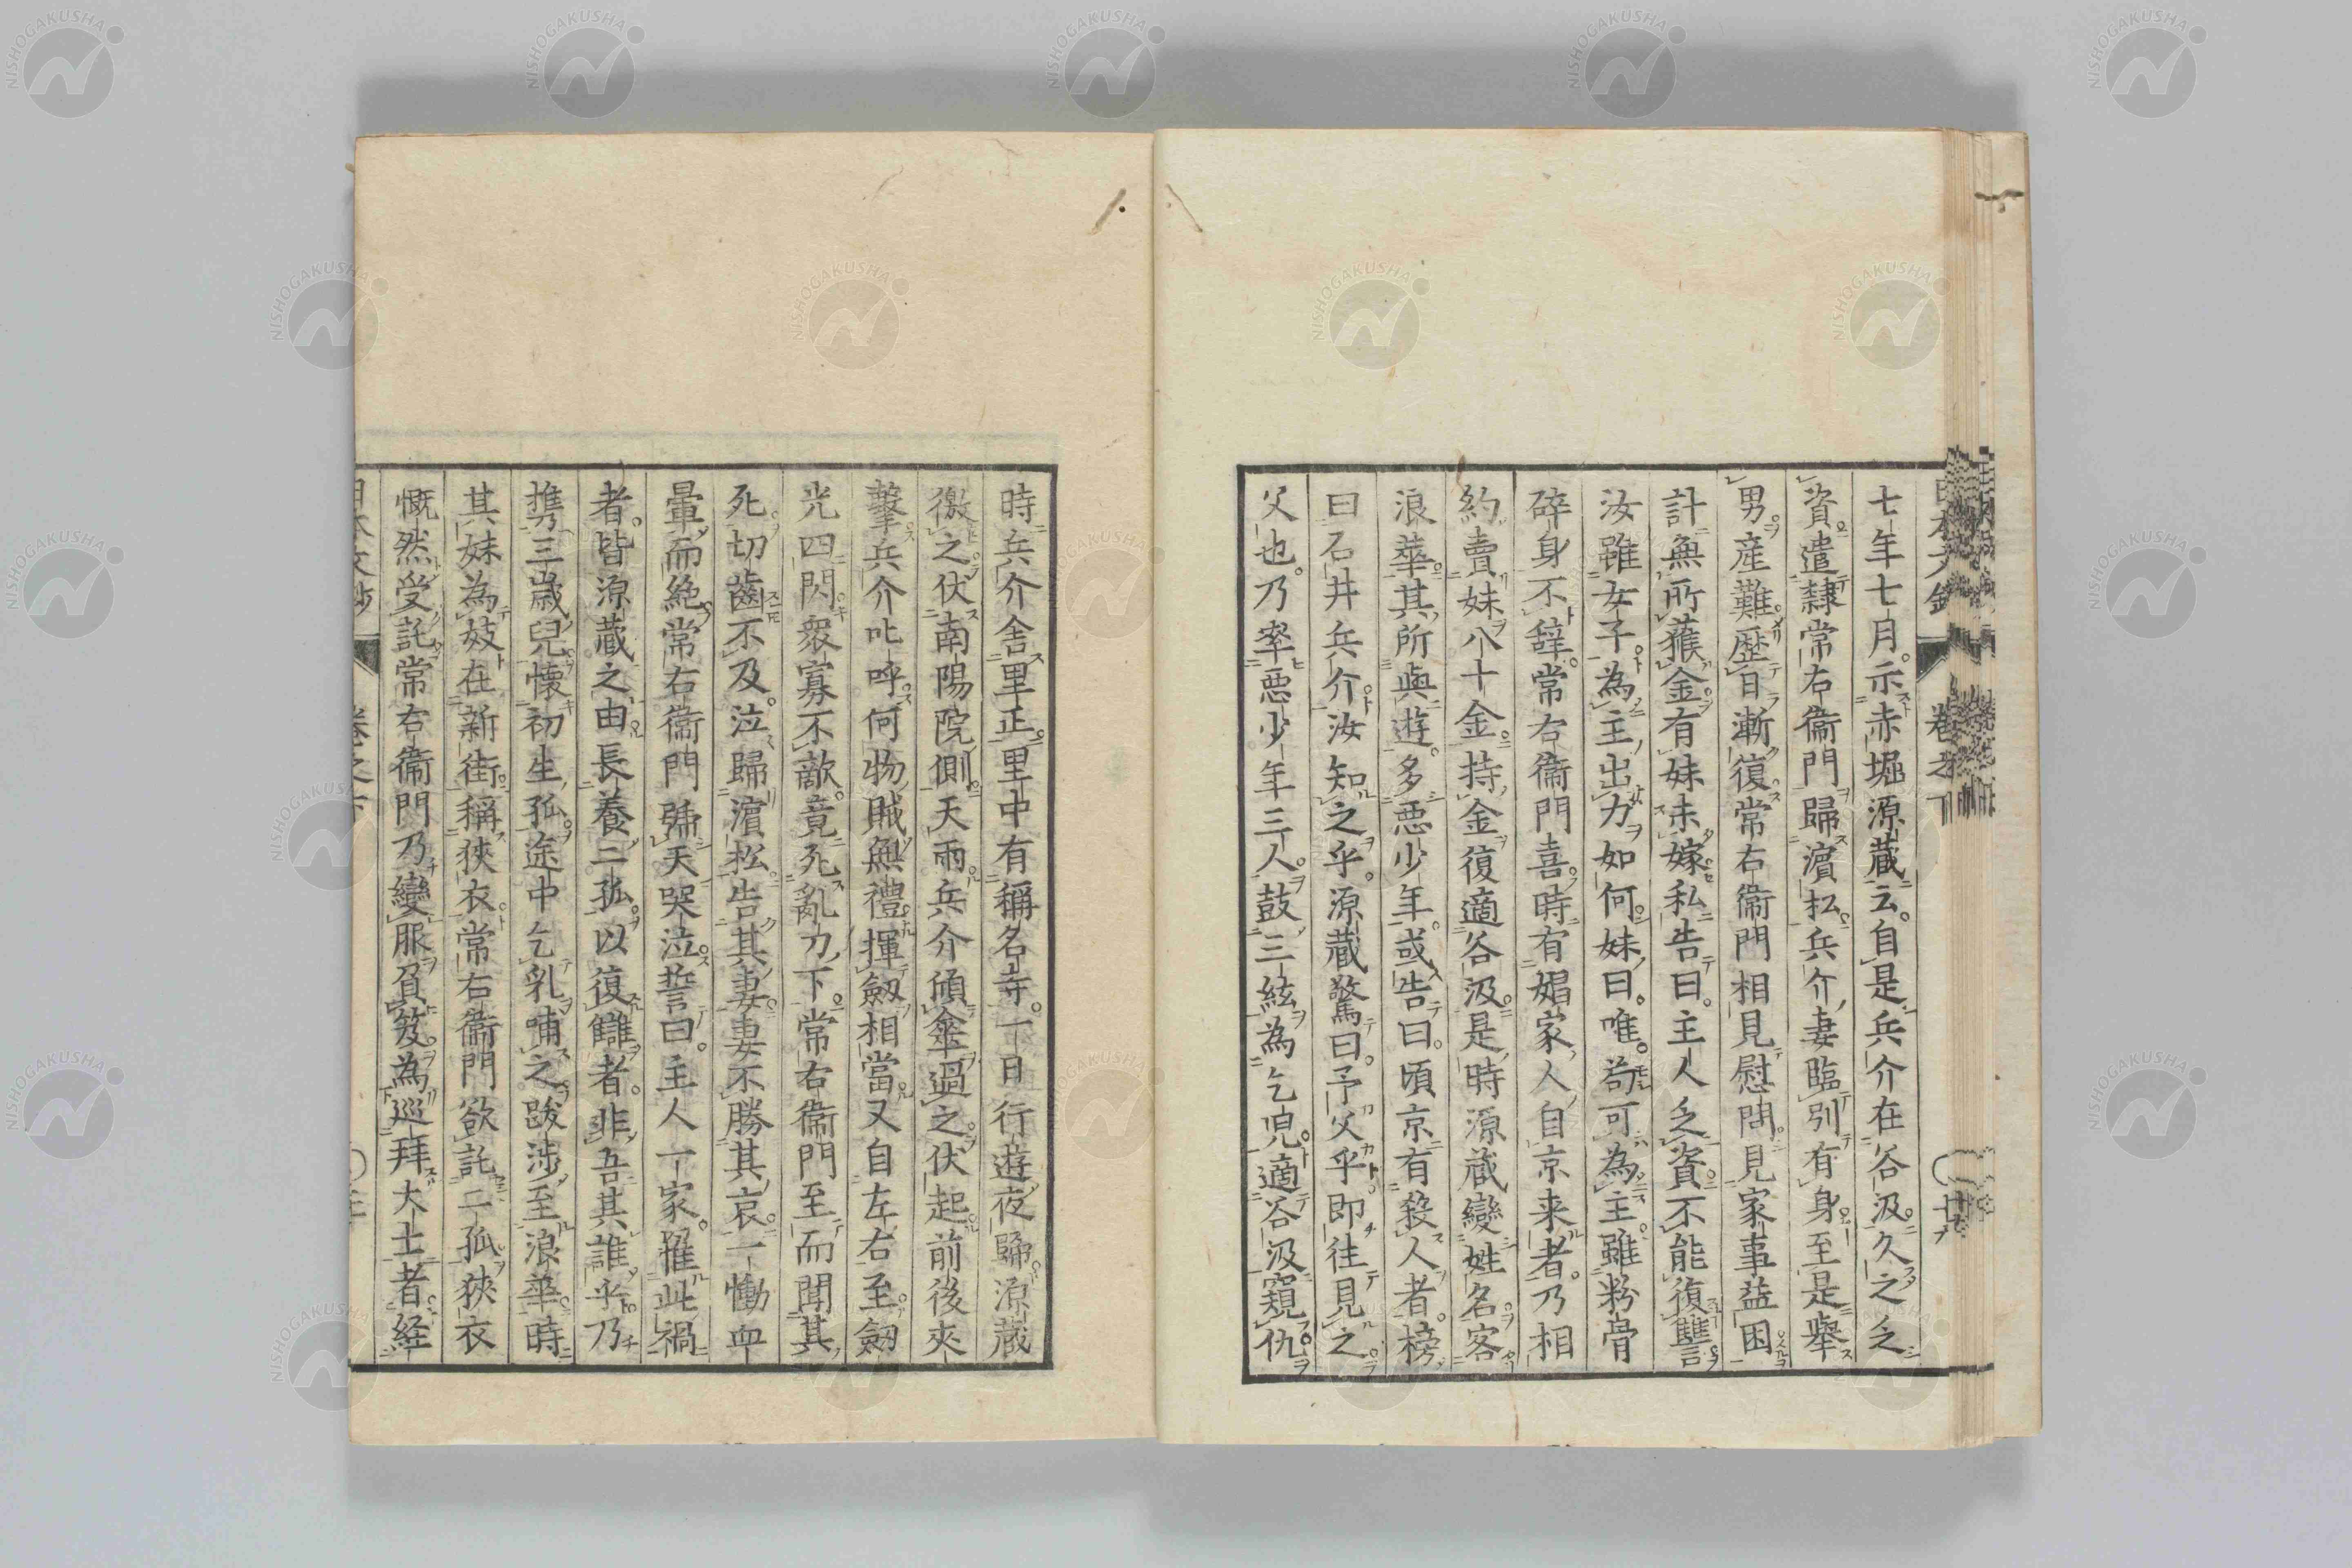 七年七月。示赤堀源蔵云。自是兵介在谷汲。久之乏
資遣隷常右衞門歸濵松。兵介妻臨別有身至是擧
男産難歴日漸復常右衞門相見慰問。見家事益困
計無所獲金。有妹未嫁私告曰。主人乏資不能復讐
汝雖女子為主出力如何。妹曰。唯。苟可為主雖粉骨
碎身不辞。常右衞門喜。時有娼家人自京来者。乃相
約賣妹八十金。持金復適谷汲。是時源蔵變姓名客
浪華。其所與遊。多悪少年。或告曰。頃京有殺人者。榜
曰石井兵介。汝知之乎。源蔵驚曰。予父乎。即往見之
父也。乃率悪少年三人。鼓三絃為乞児。適谷汲窺仇
時兵介舎里正。里中有稱名寺。一日行遊夜歸。源蔵
徼之伏南陽院側。天雨兵介傾傘過之。伏起。前後夾
擊兵介叱呼。何物賊無禮。揮劔相當。又自左右至。劔
光四閃衆寡不敵。竟死亂刀下。常右衞門至而聞其
死。切齒不及。泣歸濵松。告其妻。妻不勝其哀。一慟血
暈而絶。常右衞門號天哭泣。誓曰。主人一家。罹此禍
者。皆源蔵之由。長養二孤。以復讎者。非吾其誰乎。乃
携三歳兒懐初生孤。途中乞乳哺之。跋渉至浪華。時
其妹為妓在新街。稱狹衣。常右衞門欲託二孤。狹衣
慨然受託。常右衞門乃變服負笈。為巡拜大士者。経